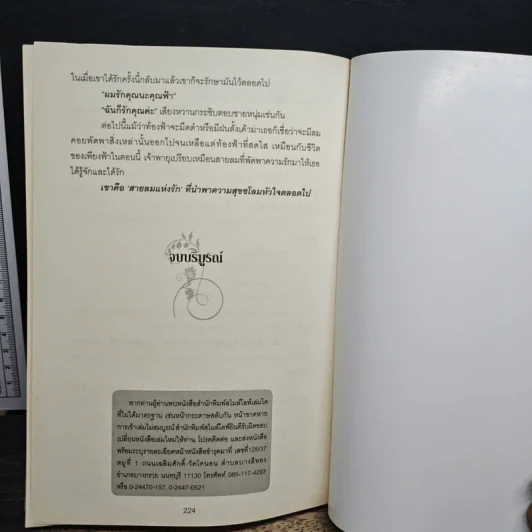 ในเมื่อเขาได้รักครั้งนี้กลับมาแล้วเขาก็จะรักษามันไว้ตลอดไป
"ผมรักคุณนะคุณฟ้า"
"ฉันก็รักคุณค่ะ" เสียงหวานกระซิบตอบชายหนุ่มเช่นกัน
ต่อไปนี้แม้ว่าท้องฟ้าจะมืดดำหรือมีฝนตั้งเค้ามาเธอก็เชื่อว่าจะมีลม
คอยพัดพาสิ่งเหล่านั้นออกไปจนเหลือแต่ท้องฟ้าที่สดใส เหมือนกับชีวิต
ของเพียงฟ้าในตอนนี้ เจ้าพายุเปรียบเหมือนสายลมที่พัดพาความรักมาให้เธอ
ได้รู้จักและได้รัก
เขาคือ 'สายลมแห่งรัก' ที่นำพาความสุขชโลมหัวใจตลอดไป
จบบริบูรณ์
หากท่านผู้อ่านพบหนังสือสำนักพิมพ์สไมล์ไลฟ์เล่มใด
ที่ไม่ได้มาตรฐาน เช่นหน้ากระดาษสลับกัน หน้าขาดหาย
การเข้าเล่มไม่สมบูรณ์ สำนักพิมพ์สไมล์ไลฟ์ยินดีรับผิดชอบ
เปลี่ยนหนังสือเล่มใหม่ให้ท่าน โปรดติดต่อ และส่งหนังสือ
พร้อมระบุรายละเอียดหน้าหนังสือชำรุดมาที่ เลขที่ 125/37
หมู่ที่ 1 ถนนเฉลิมศักดิ์-วัดโคนอน ตำบลบางสีทอง
อำเภอบางกรวย นนทบุรี 11130 โทรศัพท์ 085-117-4293
หรือ 0-24470-157, 0-2447-0521
224